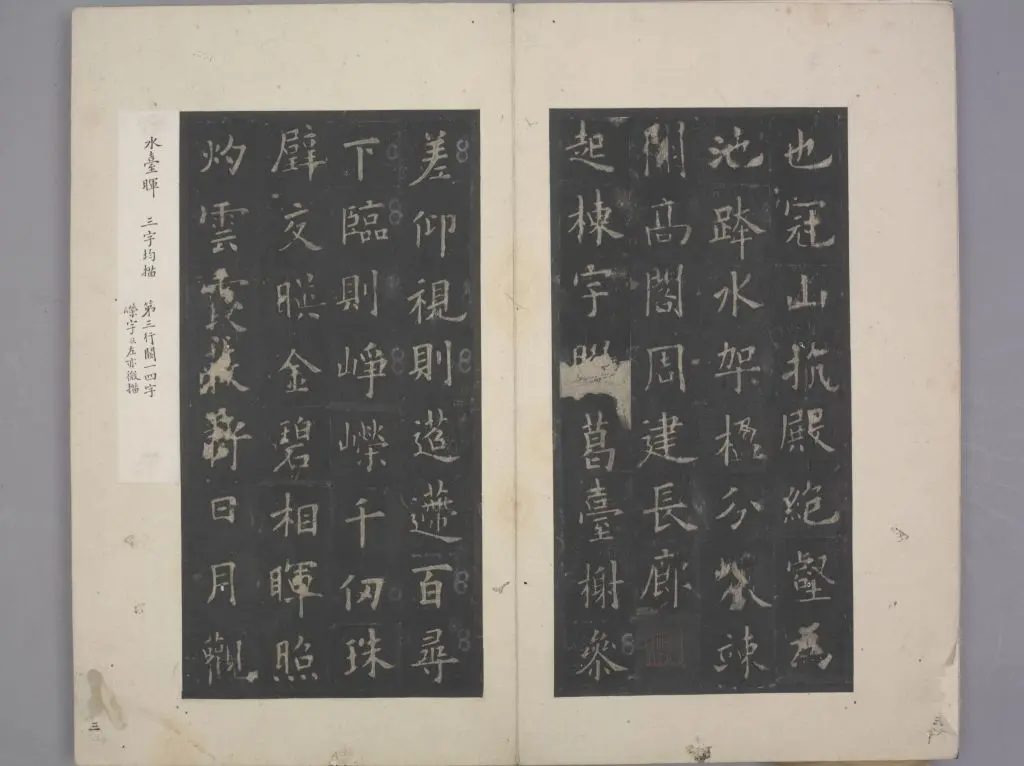 也冠山抗殿絕壑為
池跨水架楹分巖竦
闕高閣周建長廊
起棟宇膠葛臺榭參
差仰視則迢遰百尋
下臨則崢嶸千仞珠
璧交暎金碧相暉照
灼雲霞蔽虧日月觀
水臺暉 三字均描
第三行闕一四字
嶸字左亦微描
三